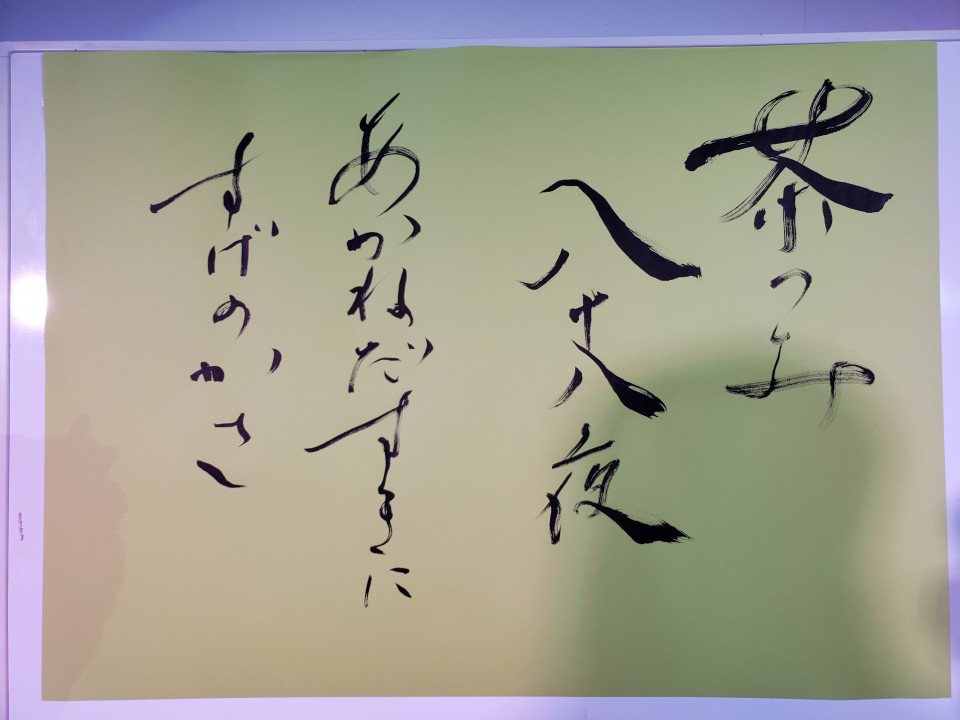 茶つみ
八十八夜
あかねだすきに
すげのかさ